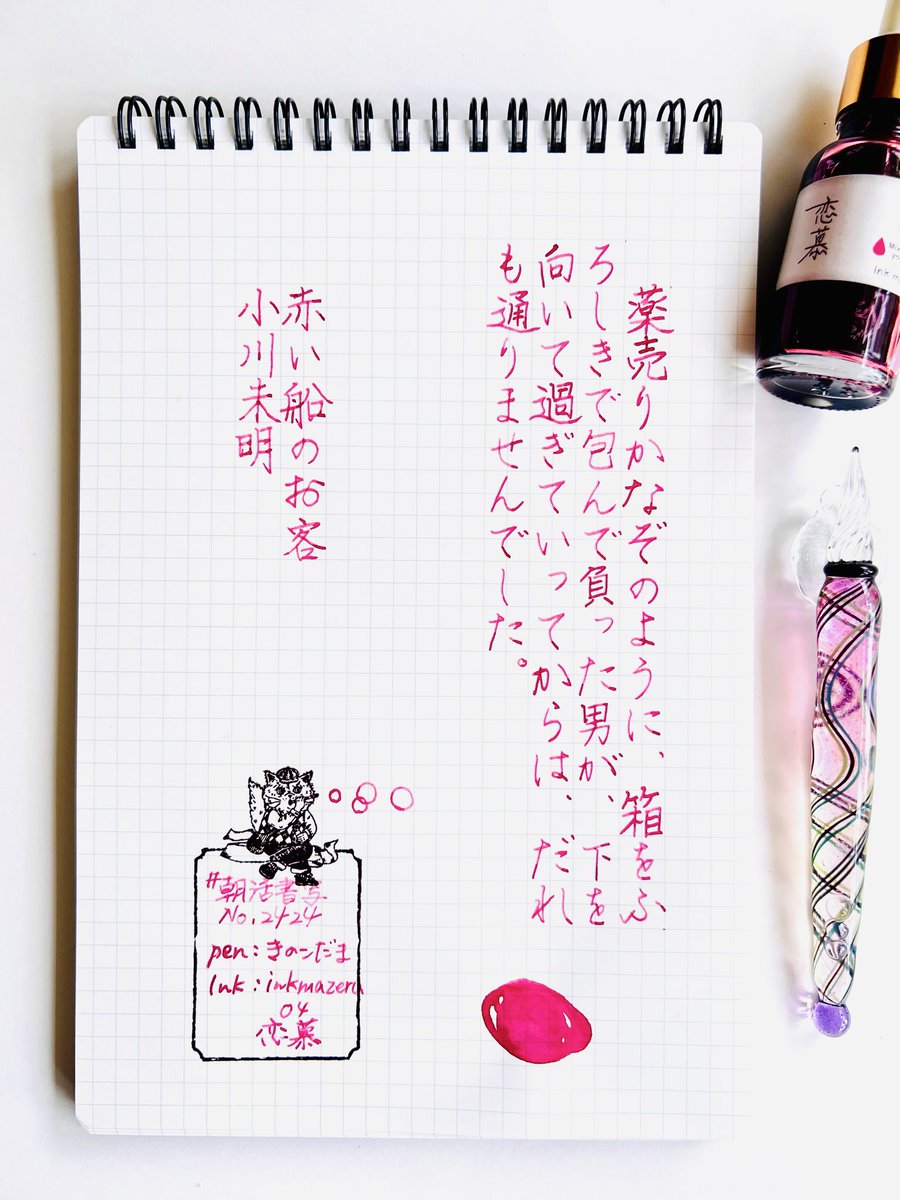 薬売りかなぞのように、箱をふ
ろしきで包んで負った男が、下を
向いて過ぎていってからは、だれ
も通りませんでした。
赤い船のお客
小川未明
#朝活書写
No.2424
pen:きのこだま
Ink:inkmazeru
04
恋慕
恋慕